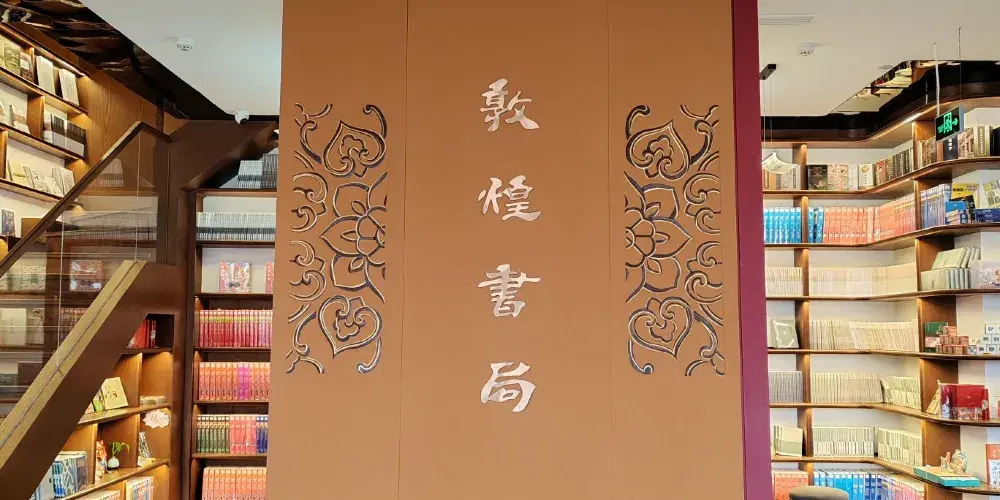 敦煌書局